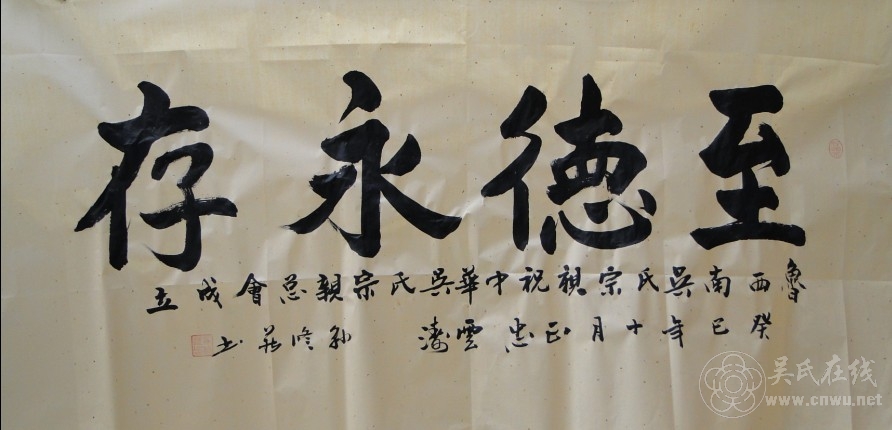 至德永存
魯西南吳氏宗祝中華吳氏宗親总會成立
癸巳年十月忠雲书
吴氏在线
www.cnwu.net